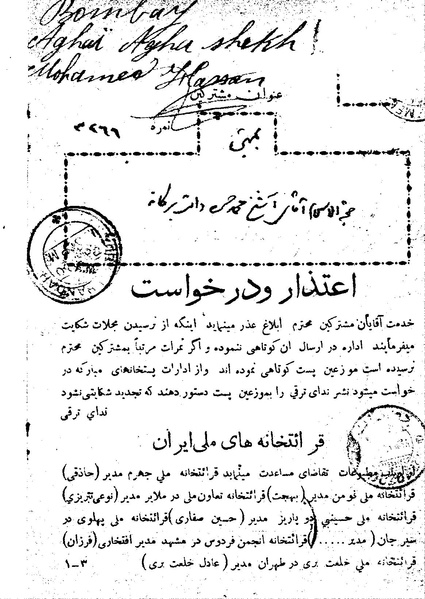 Bombay
Aghaï Agha shekh
Mohamed Hassan
عنوان مشترکین
نمره ۳۲۶۹
بمبئی
حجةالاسلام آقای آشیخ محمد حسن دامت برکاته
اعتذار ودرخواست
خدمت آقایان مشترکین محترم ابلاغ عذر مینماید اینکه از نرسیدن مجلات شکایت
میفرمایند اداره در ارسال ان کوتاهی ننموده و اگر نمرات مرتباً بمشترکین محترم
نرسیده است موزعین پست کوتاهی نموده اند واز ادارات پستخانهای مبارکه در
خواست میشود نشر ندای ترقی را بموزعین پست دستور دهند که تجدید شکایتی نشود
ندای ترقی
قرائتخانه های ملی ایران
از ارباب مطبوعات تقاضای مساعدت مینماید قرائتخانه ملی جهرم مدیر (حاذقی)
قرائتخانه ملی فومن مدیر (بهجت) قرائتخانه تعاون ملی در ملایر مدیر (نوعی تبریزی)
قرائتخانه ملی حسینی در پاریز مدیر (حسین صفاری) قرائتخانه ملی پهلوی در
سیرجان (مدیر .....) قرائتخانه انجمن فردوس در مشهد مدیر افتخاری (فرزان)
قرائتخانه ملی خلعت بری در طهران مدیر (عادل خلعت بری) ۳-۱